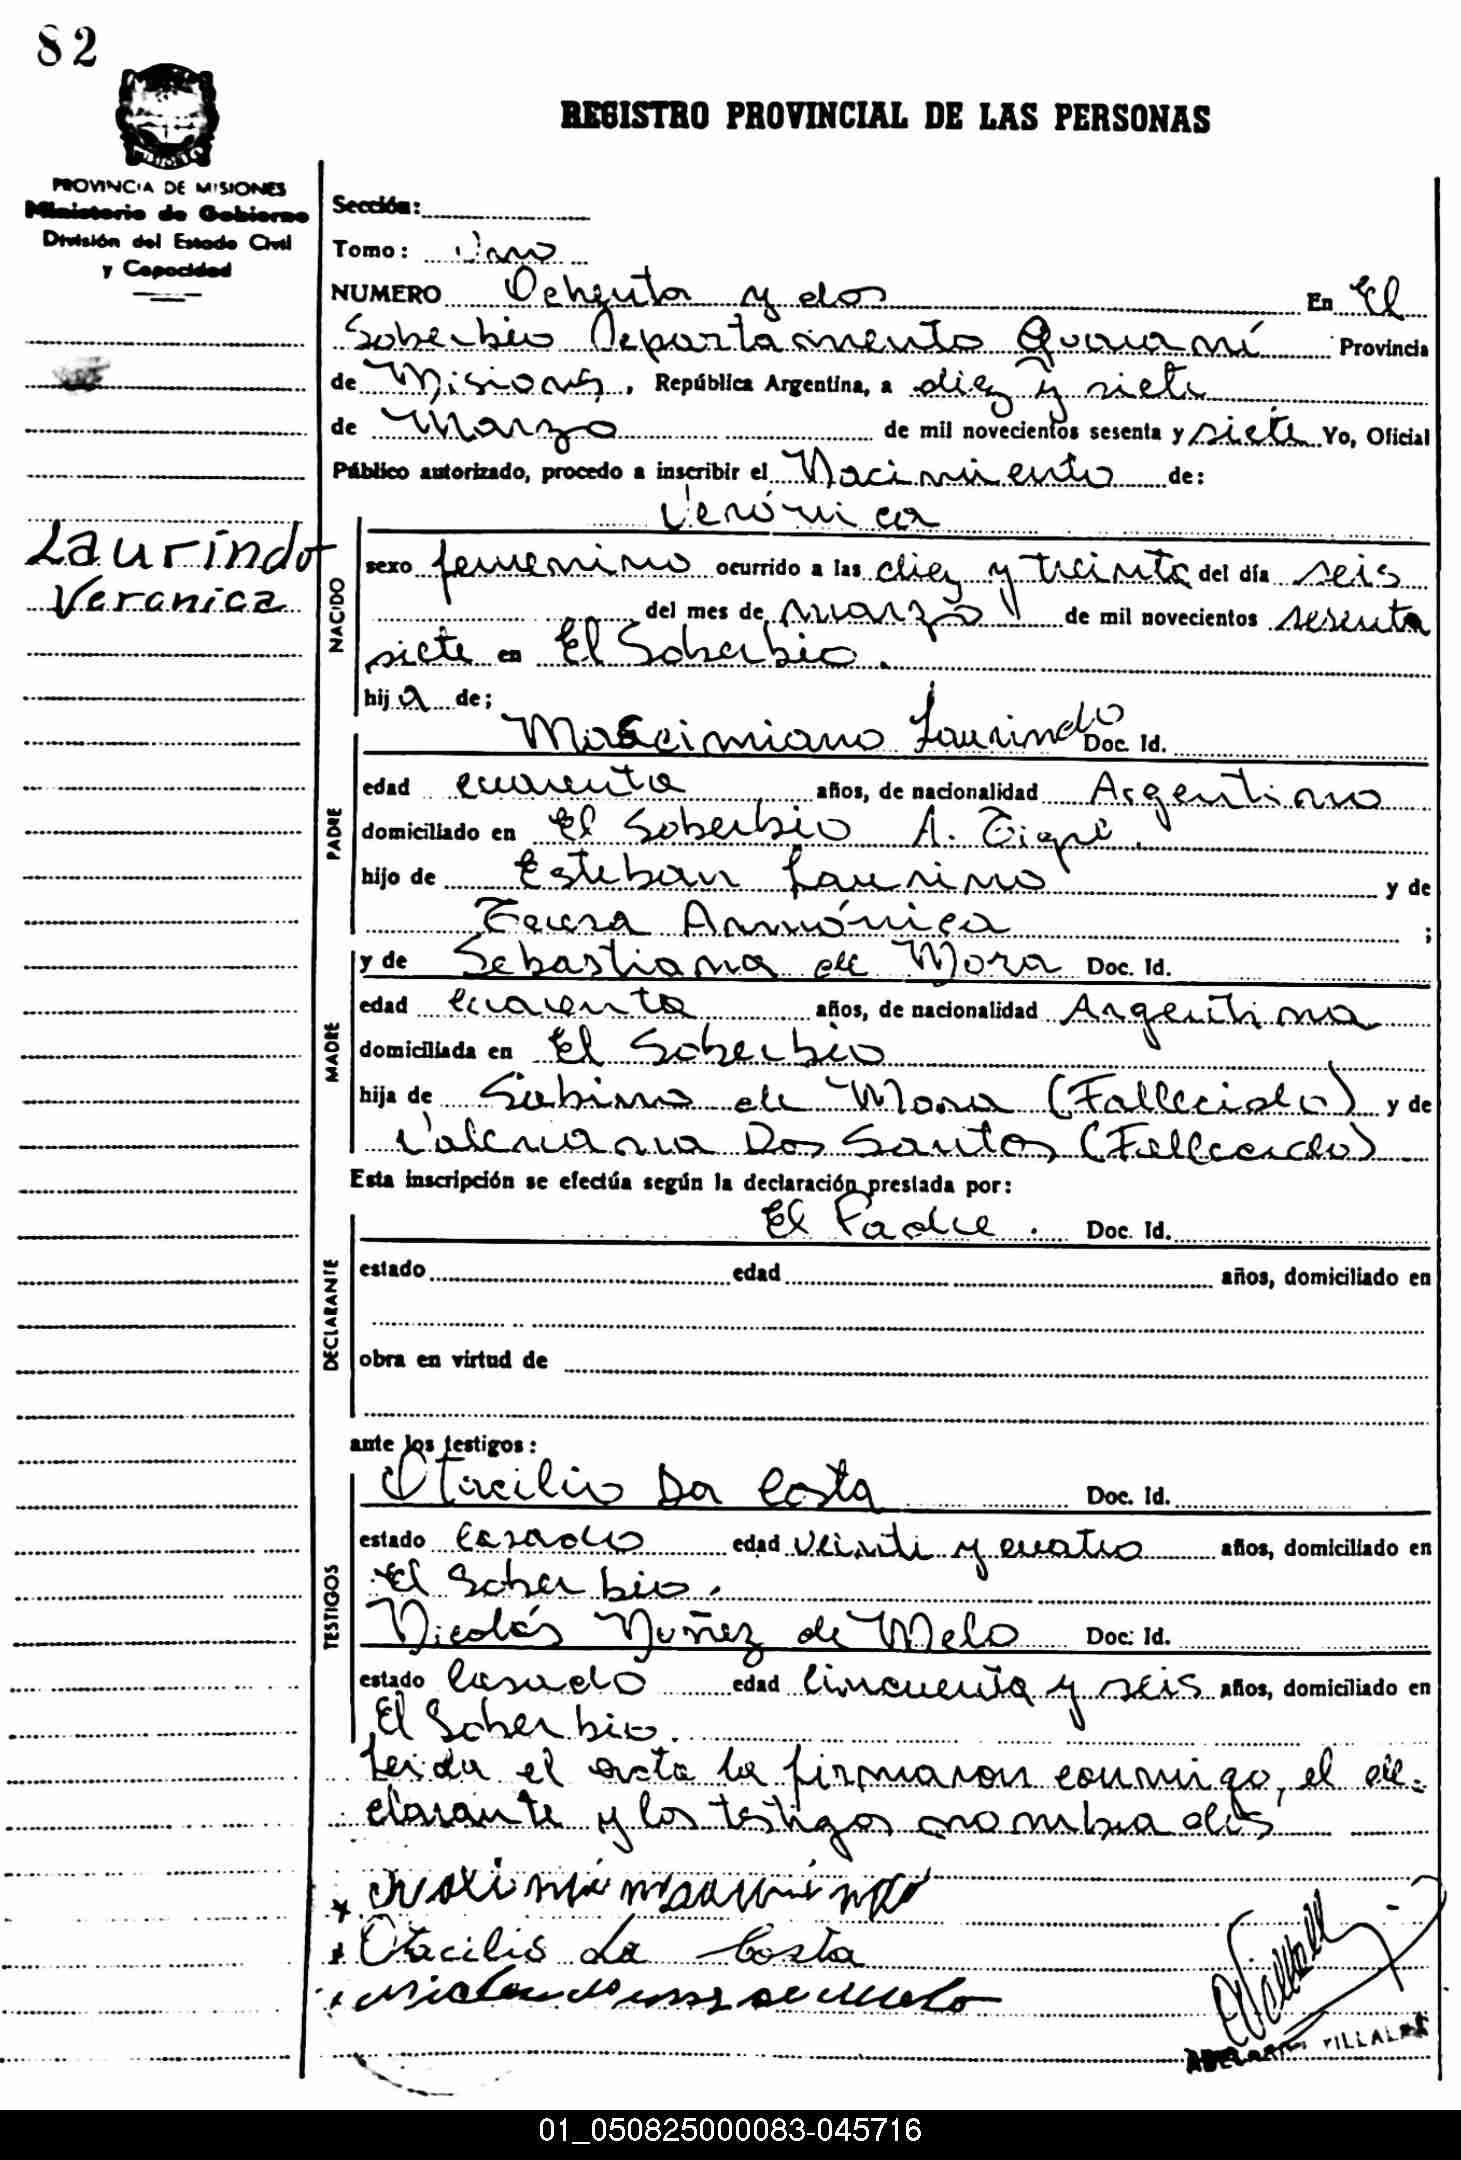 82
REGISTRO PROVINCIAL DE LAS PERSONAS
PROVINCIA DE MISIONES
Ministerio de Gobierno
División del Estado Civil
y Capacidad
Sección:
Tomo: Uno
NUMERO Ochenta y dos En El
Soberbio Departamento Guaraní Provincia
de Misiones, República Argentina, a diez y siete
de Marzo de mil novecientos sesenta y siete Yo, Oficial
Público autorizado, procedo a inscribir el Nacimiento de:
Verónica
Laurindo
Veronica
NACIDO
sexo femenino ocurrido a las diez y treinta del día seis
del mes de marzo de mil novecientos sesenta
siete en El Soberbio.
hija de;
PADRE
Mascimiano Laurindo Doc. Id.
edad cuarenta años, de nacionalidad Argentino
domiciliado en El Soberbio A. Tigre.
hijo de Esteban Laurino y de
Teresa Armónica ;
MADRE
y de Sebastiana de Mora Doc. Id.
edad cuarenta años, de nacionalidad Argentina
domiciliada en El Soberbio
hija de Sabino de Mora (Fallecido) y de
Valeriana Dos Santos (Fallecido)
Esta inscripción se efectúa según la declaración prestada por:
DECLARANTE
El Padre. Doc. Id.
estado edad años, domiciliado en
obra en virtud de
ante los testigos:
TESTIGOS
Otacilio Da Costa Doc. Id.
estado Casado edad veinti y cuatro años, domiciliado en
El Soberbio.
Nicolás Nuñez de Melo Doc. Id.
estado Casado edad Cincuenta y seis años, domiciliado en
El Soberbio.
Leida el acta la firmaron conmigo, el de-
clarante y los testigos nombrados
Otacilio da Costa
de Melo
VILLALBA
01_050825000083-045716